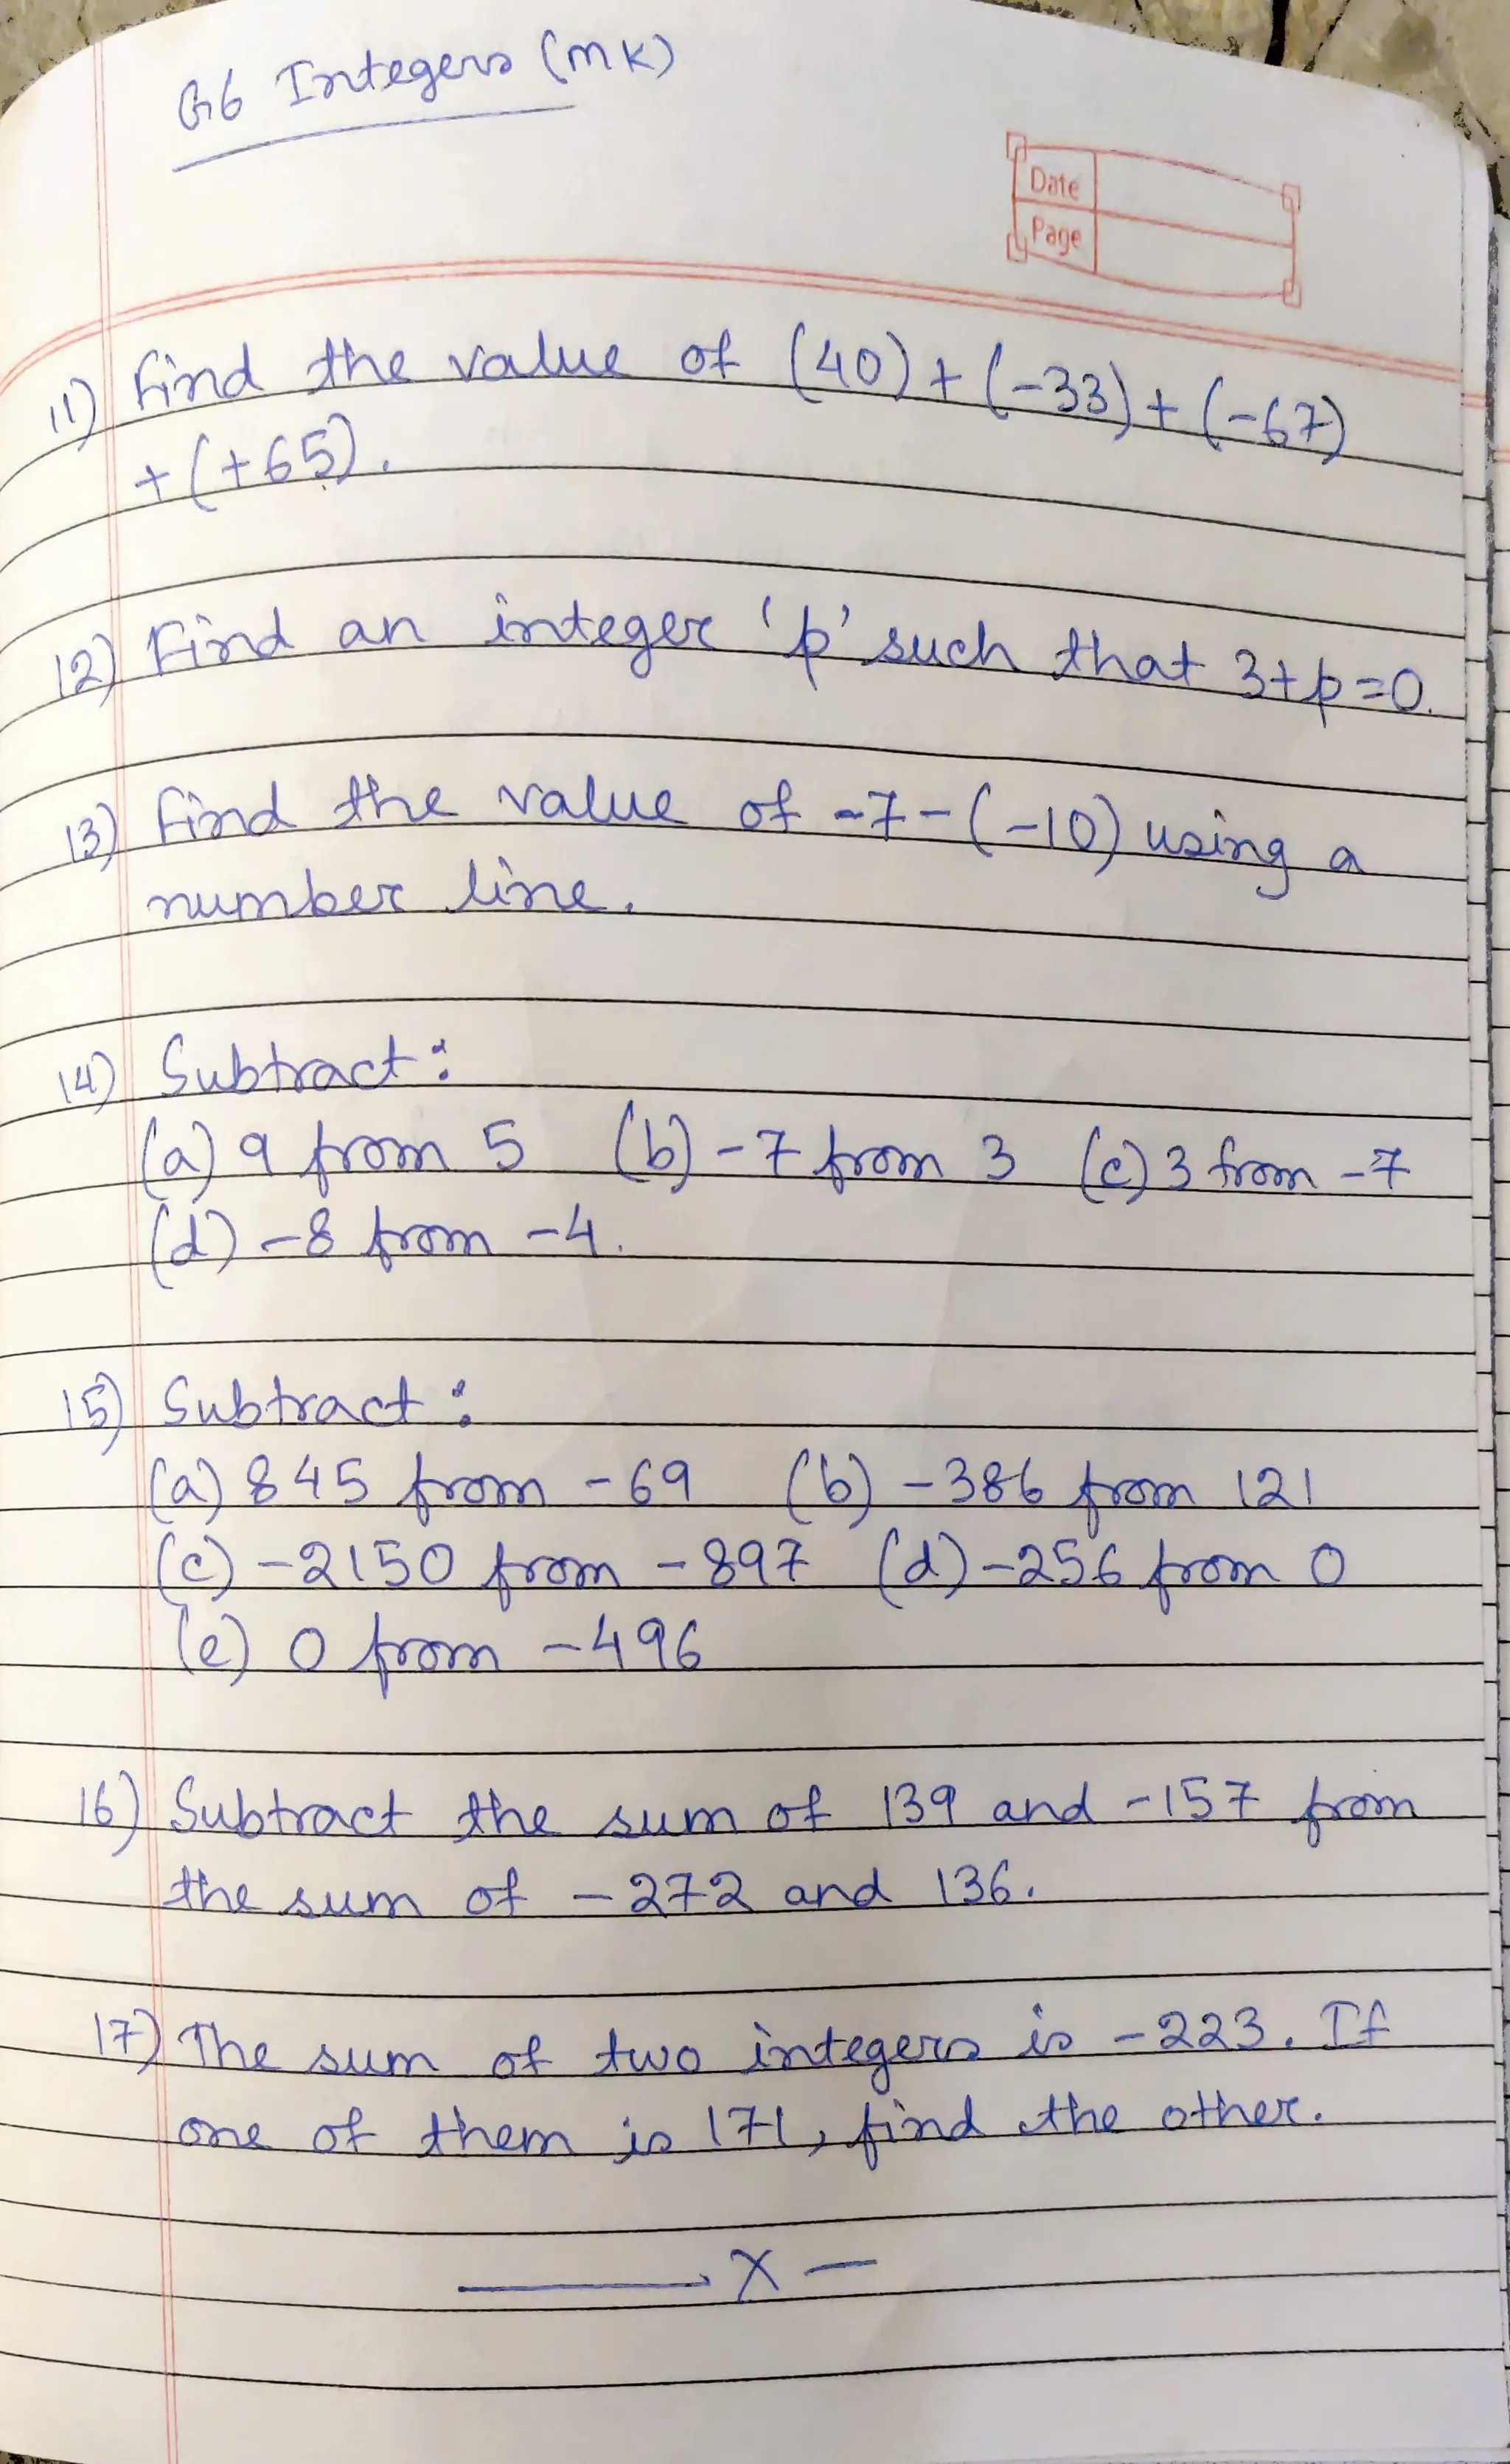 G6 Integers (MK)
Date
Page
11) Find the value of (40) + (-33) + (-67)
+ (+65).
12) Find an integer 'p' such that 3+p=0.
13) Find the value of -7-(-10) using a
number line.
14) Subtract:
(a) 9 from 5 (b) -7 from 3 (c) 3 from -7
(d) -8 from -4.
15) Subtract:
(a) 845 from -69 (b) -386 from 121
(c) -2150 from -897 (d) -256 from 0
(e) 0 from -496
16) Subtract the sum of 139 and -157 from
the sum of -272 and 136.
17) The sum of two integers is -223. If
one of them is 171, find the other.
—— X —